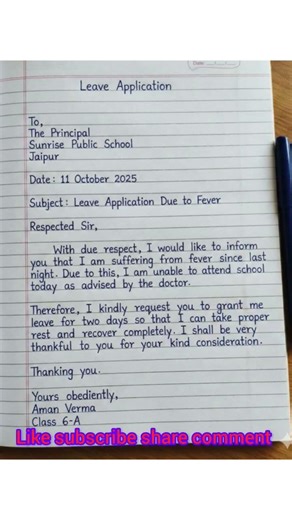 Date:
Leave Application
To,
The Principal
Sunrise Public School
Jaipur
Date: 11 October 2025
Subject: Leave Application Due to Fever
Respected Sir,
With due respect, I would like to inform
you that I am suffering from fever since last
night. Due to this, I am unable to attend school
today as advised by the doctor.
Therefore, I kindly request you to grant me
leave for two days so that I can take proper
rest and recover completely. I shall be very
thankful to you for your kind consideration.
Thanking you.
Yours obediently,
Aman Verma
Class 6-A
Like subscribe share comment